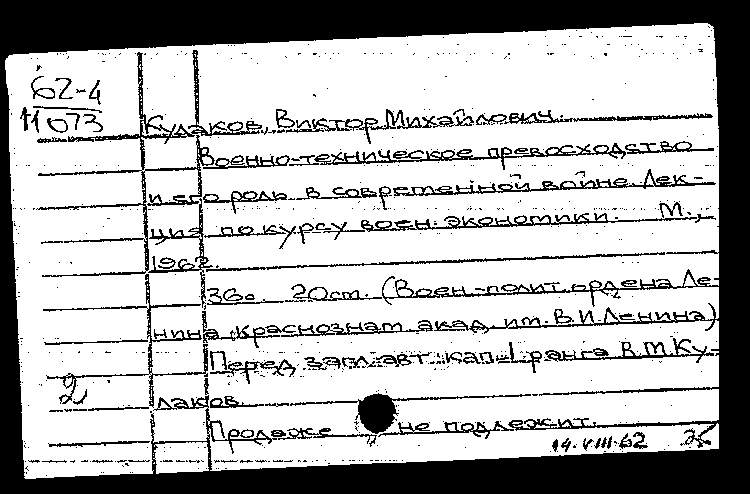 62-4
11073
Кулаков, Виктор Михайлович.
Военно-техническое превосходство
и его роль в современной войне. Лек-
ция по курсу воен. экономики. М.,
1962.
36с. 20см. (Воен.-полит. ордена Ле-
нина, краснознам. акад. им. В.И. Ленина)
Перед загл. авт.: кап. 1 ранга В.М. Ку-
2 лаков.
Продаже не подлежит.
14.VIII.62